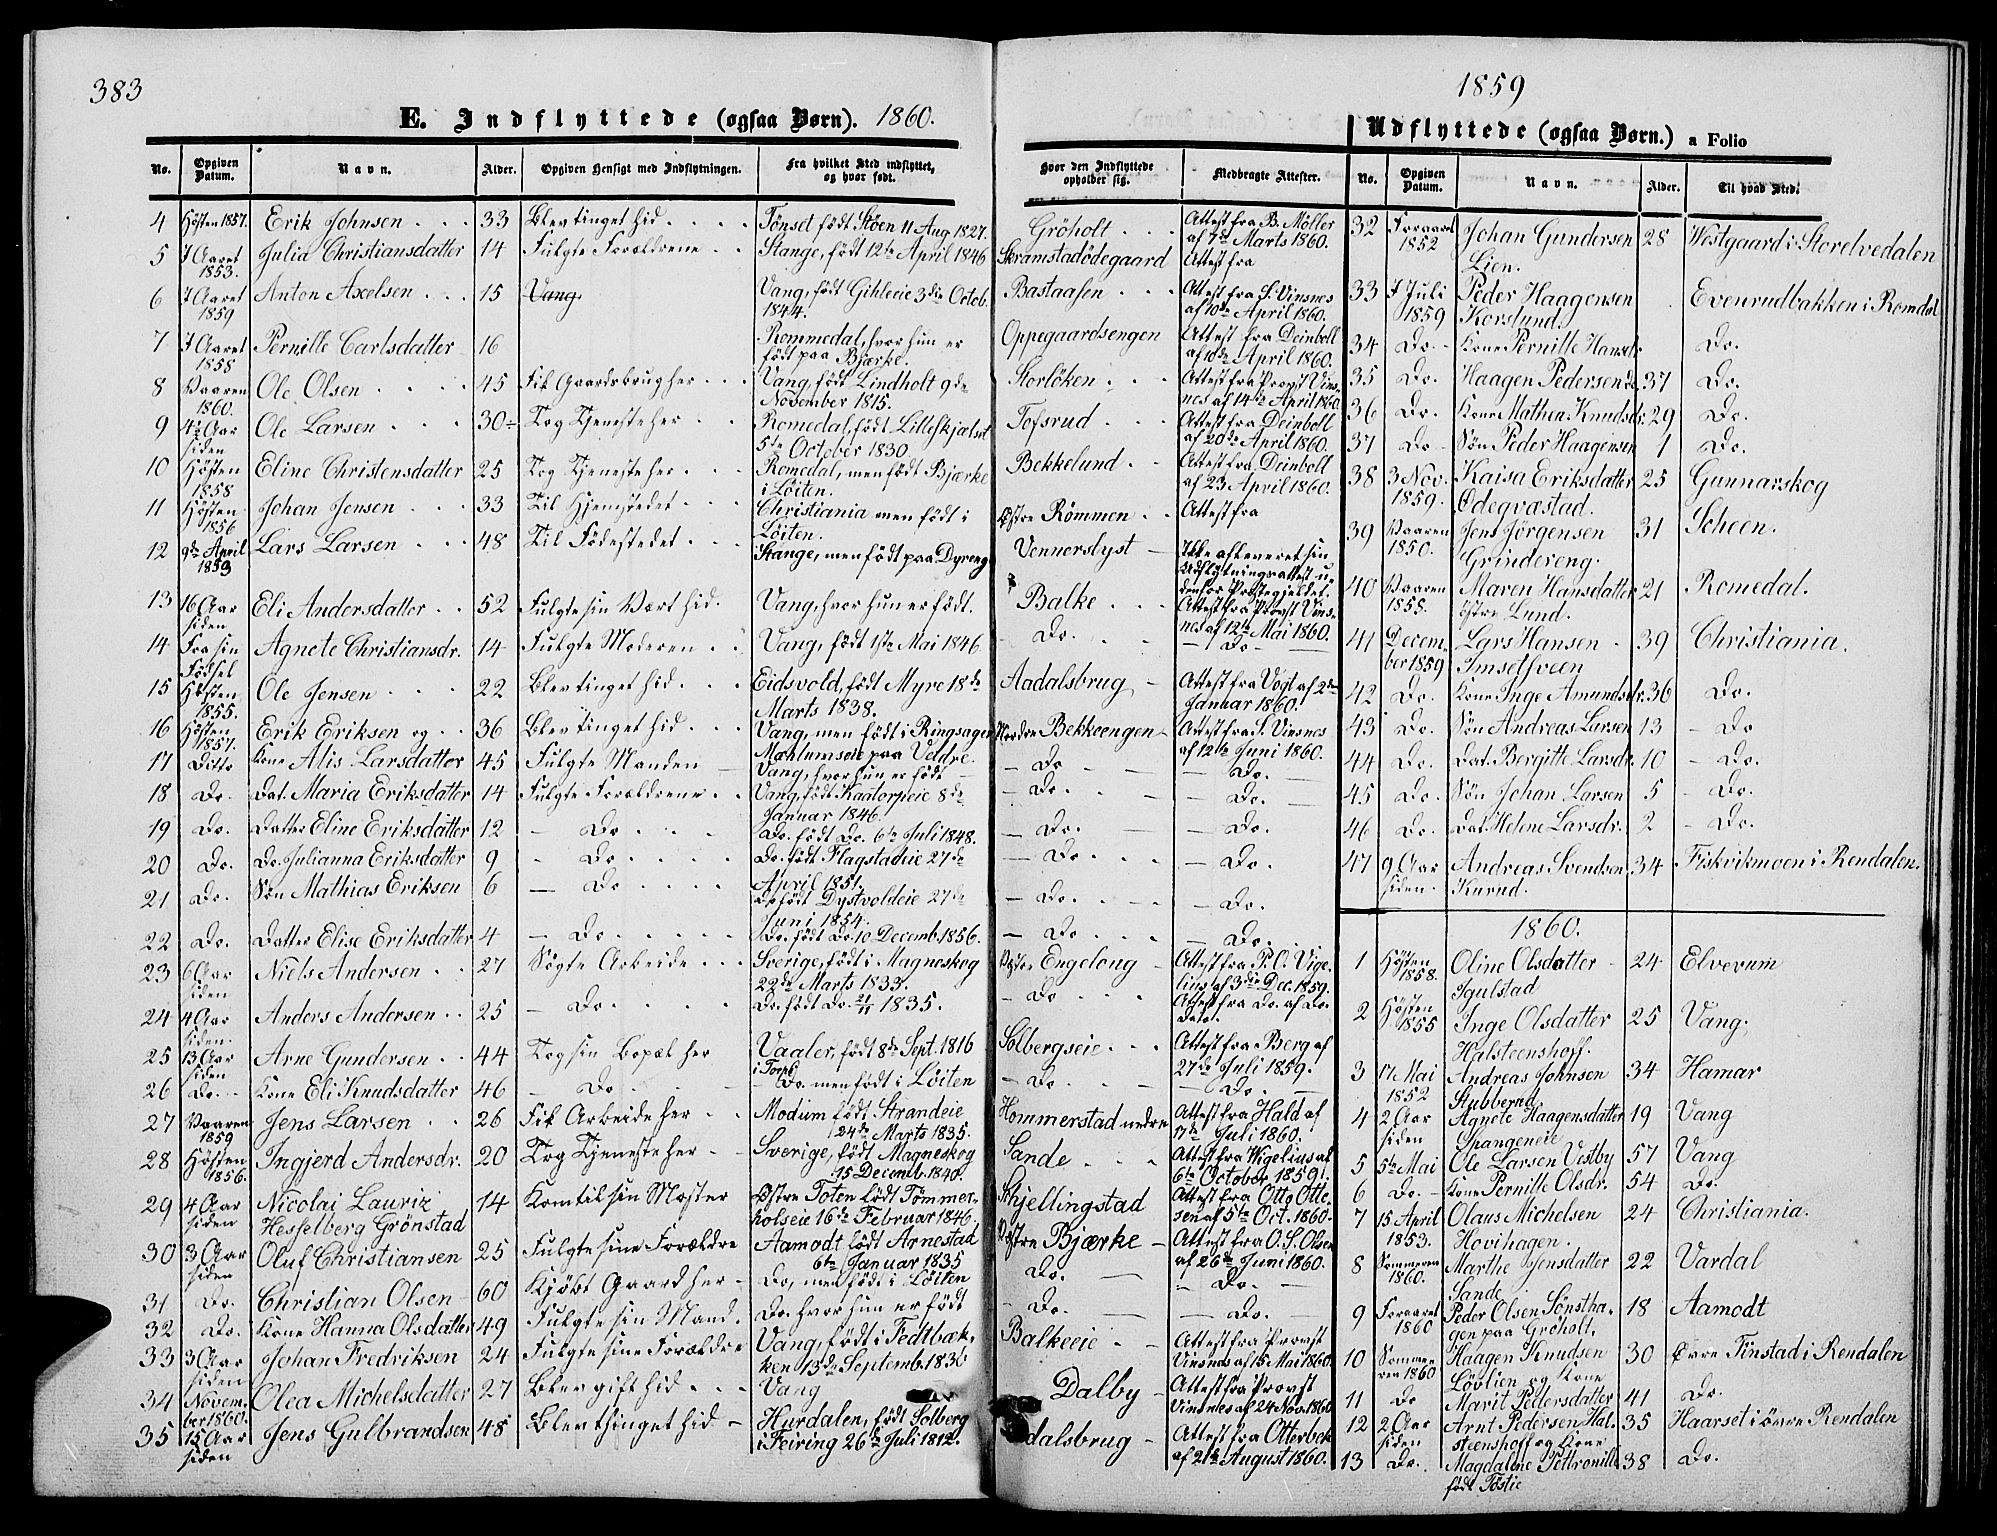 383
E. Indflyttede (ogsaa Børn). 1860.
No. Opgiven Datum. Navn. Alder. Opgiven Hensigt med Indflytningen. Fra hvilket Sted indflyttet, og hvor født. Hvor den Indflyttede opholder sig. Medbragte Attester.
4 Høsten 1857. Erik Johnsen 33 Blev tinget hid Tønset født Støen 11 Aug 1827. Gröholt Attest fra B. Möller af 7de Marts 1860.
5 I Aaret 1853. Julia Christiansdatter 14 Fulgte Forældrene Stange, født 12te April 1846 Skramstadödegaard Attest fra
6 I Aaret 1859 Anton Axelsen 15 Vang Vang, født Gihleie 3die Octob. 1844. Bastaasen Attest fra S. Vinsnes af 10de April 1860.
7 I Aaret 1858 Pernille Carlsdatter 16 Rommedal, hvor hun er født paa Bjærke. Oppegaardsengen Attest fra Deinboll af 18de April 1860.
8 Vaaren 1860. Ole Olsen 45 Fik Gaardsbrug her Vang, født Lindholt 9de November 1815. Storlöken Attest fra Provst Vinsnes af 14de April 1860.
9 4½ Aar siden Ole Larsen 30 Tog Tjeneste her Romedal, født Lilleskjælset 5te October 1830 Tofsrud Attest fra Deinboll af 20de April 1860.
10 Høsten 1858 Eline Christensdatter 25 Tog Tjeneste her Romedal, men født Bjærke i Löiten. Bekkelund Attest fra Deinboll af 23 April 1860.
11 Høsten 1856 Johan Jensen 33 Til Hjemstedet Christiania men født i Löiten. Østre Römmen Attest fra
12 9de April 1853 Lars Larsen 48 Til Fødestedet Stange, men født paa Dyreng Vennerslyst Ikke afleveret sin Udflytningsattest udenfor Prestegjeldet.
13 16 Aar siden Eli Andersdatter 52 Fulgte sin Vært hid. Vang, hvor hun er født. Balke Attest fra Provst Vinsnes af 12te Mai 1860.
14 Fra sin Fødsel Agnete Christiansdr. 14 Fulgte Moderen Vang, født 1ste Mai 1846 Do. Do
15 Høsten 1855. Ole Jensen 22 Blev tinget hid Eidsvold, født Myre 18de Marts 1838. Aadalsbrug Attest fra Vogt af 2den Januar 1860.
16 Høsten 1857. Erik Eriksen og 36 Blev tinget hid Vang, men født i Ringsager Mæhlumseie paa Veldre. Nordre Bekkeengen Attest fra S. Vinsnes af 12te Juni 1860.
17 Ditto Kone Alis Larsdatter 45 Fulgte Manden Vang, hvor hun er født Do Do.
18 Do. Dat. Maria Eriksdatter 14 Fulgte Forældrene Vang, født Kaatorpeie 8de Januar 1846. Do. Do.
19 Do. Datter Eline Eriksdatter 12 Do. Do. født Do. 6te Juli 1848. Do. Do.
20 Do. Do. Julianna Eriksdatter 9 Do. Do. født Flagstadeie 27de April 1851. Do. Do.
21 Do. Søn Mathias Eriksen 6 Do Do født Dystvoldeie 27de Juni 1854. Do. Do.
22 Do. Datter Elise Eriksdatter 4 Do Do. født Do. 10 Decemb. 1856. Do Do.
23 6 Aar siden Niels Andersen 27 Søgte Arbeide Sverige, født i Magneskog 22de Marts 1833. Østre Engelong Attest fra P. C. Vigelius af 3die Dec. 1859.
24 4 Aar siden. Anders Andersen 25 Do. Do. født Do. 21/11 1835. Do Attest fra Do. af Do. Dato.
25 13 Aar siden Arne Gundersen 44 Tog sin Bopæl her Vaaler, født 8de Sept. 1816 i Torpe Solbergseie Attest fra Berg af 27de Juli 1859.
26 Do. Kone Eli Knudsdatter 46 Do. Do. men født i Löiten Do. Do.
27 Vaaren 1859 Jens Larsen 26 Fik Arbeide her Modum født Strandeie 24de Marts 1835. Hommerstad nedre Attest fra Hald af 17de Juli 1860.
28 Høsten 1856. Ingjerd Andersdr. 20 Tog Tjeneste her Sverige, født Magneskog 15 Decemb. 1840. Sande Attest fra Wigelius af 6te October 1859.
29 4 Aar siden Nicolai Lauriz Hesselberg Grönstad 14 Kom til sin Moster Østre Toten født Tömmerholseie 16de Februar 1846. Skjellingstad Attest fra Otto Ottesen af 5te Oct. 1860.
30 3 Aar siden Oluf Christiansen 25 Fulgte sine Forældre Aamodt født Arnestad 6te Januar 1835 Østre Bjærke Attest fra O. S. Olsen af 26de Juni 1860.
31 Do. Christian Olsen 60 Kjøbt Gaard her Do, men født i Löiten Do. Do.
32 Do. Kone Hanna Olsdatter 49 Fulgte sin Mand. Do. hvor hun er født Do. Do.
33 3 Aar siden Johan Fredriksen 24 Fulgte sine Forældre Vang, født i Fedtbækken 13de Septemb. 1836 Balkeeie Attest fra Provst Vinsnes af 15 Mai 1860.
34 November 1860. Olea Michelsdatter 27 Blev gift hid Vang Dalby Attest fra Provst Vinsnes af 24 Nov. 1860
35 15 Aar siden Jens Gulbrandsen 48 Blev thinget hid Hurdalen, født Solberg i Feiring 26de Juli 1812. dalsbrug Attest fra Otterbek af 21de August 1860.
1859
Udflyttede (ogsaa Børn.) a Folio
No. Opgiven Datum. Navn. Alder. Til hvad Sted.
32 Foraaret 1852 Johan Gundersen Lien. 28 Westgaard i Storelvedalen
33 I Juli 1859 Peder Haagensen Korslund. Evenrudbakken i Romdal
34 Do. Kone Pernille Hansdr Do.
35 Do. Haagen Pedersen do 37 Do.
36 Do. Kone Mathea Knudsdr. 29 Do.
37 Do Søn Peder Haagensen 1 Do.
38 3 Nov. 1859. Kaisa Eriksdatter Ödegræstad. 25 Gunnarskog
39 Vaaren 1850. Jens Jörgensen Grindereng. 31 Scheen.
40 Vaaren 1858. Maren Hansdatter østre Lund. 21 Romedal.
41 December 1859 Lars Hansen Imsetsveen 39 Christiania.
42 Do. Kone Inge Amundsdr. 36 Do.
43 Do. Søn Andreas Larsen 13 Do
44 Do. Dat. Bergitte Larsdr. 10 Do.
45 Do. Søn Johan Larsen 5 Do.
46 Do. Dat. Helene Larsdr. 2 Do.
47 9 Aar siden. Andreas Svendsen Kurud. 34 Fiskvikmoen i Rendalen.
1860.
1 Høsten 1858. Oline Olsdatter Igulstad 24 Elverum
2 Høsten 1855 Inge Olsdatter Halsteenshoff. 25 Vang.
3 17 Mai 1852 Andreas Johnsen Stubberud 34 Hamar
4 2 Aar siden Agnete Haagensdatter Spangeneie 19 Vang
5 5te Mai Ole Larsen Vestby 57 Vang
6 Do. Kone Pernille Olsdr. 54 Do.
7 15 April 1853. Olaus Michelsen Hovihagen. 24 Christiania.
8 Sommeren 1860. Marthe Jensdatter Sande. 22 Vardal
9 Foraaret 1860 Peder Olsen Sönsthagen paa Gröholt. 18 Aamodt
10 Sommeren 1860 Haagen Knudsen Lövlien og Kone 30 Øvre Finstad i Rendalen
11 Do Marit Pedersdatter 41 Do.
12 2 Aar siden Arnt Pedersen Halsteenshoff og Kone 35 Haarset i övre Rendalen
13 Do. Magdalene Pettronille født Töstie 38 Do.